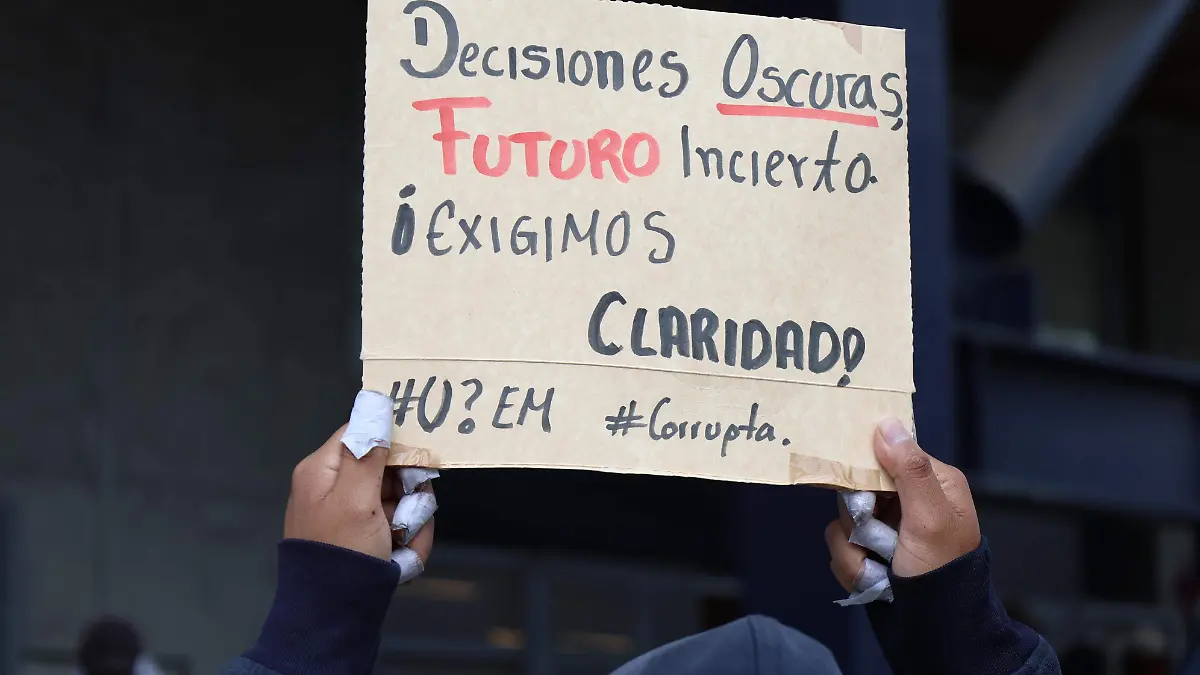 Decisiones Oscuras,
Futuro Incierto.
¡EXIGIMOS
CLARIDAD!
#U?EM #Corrupta.